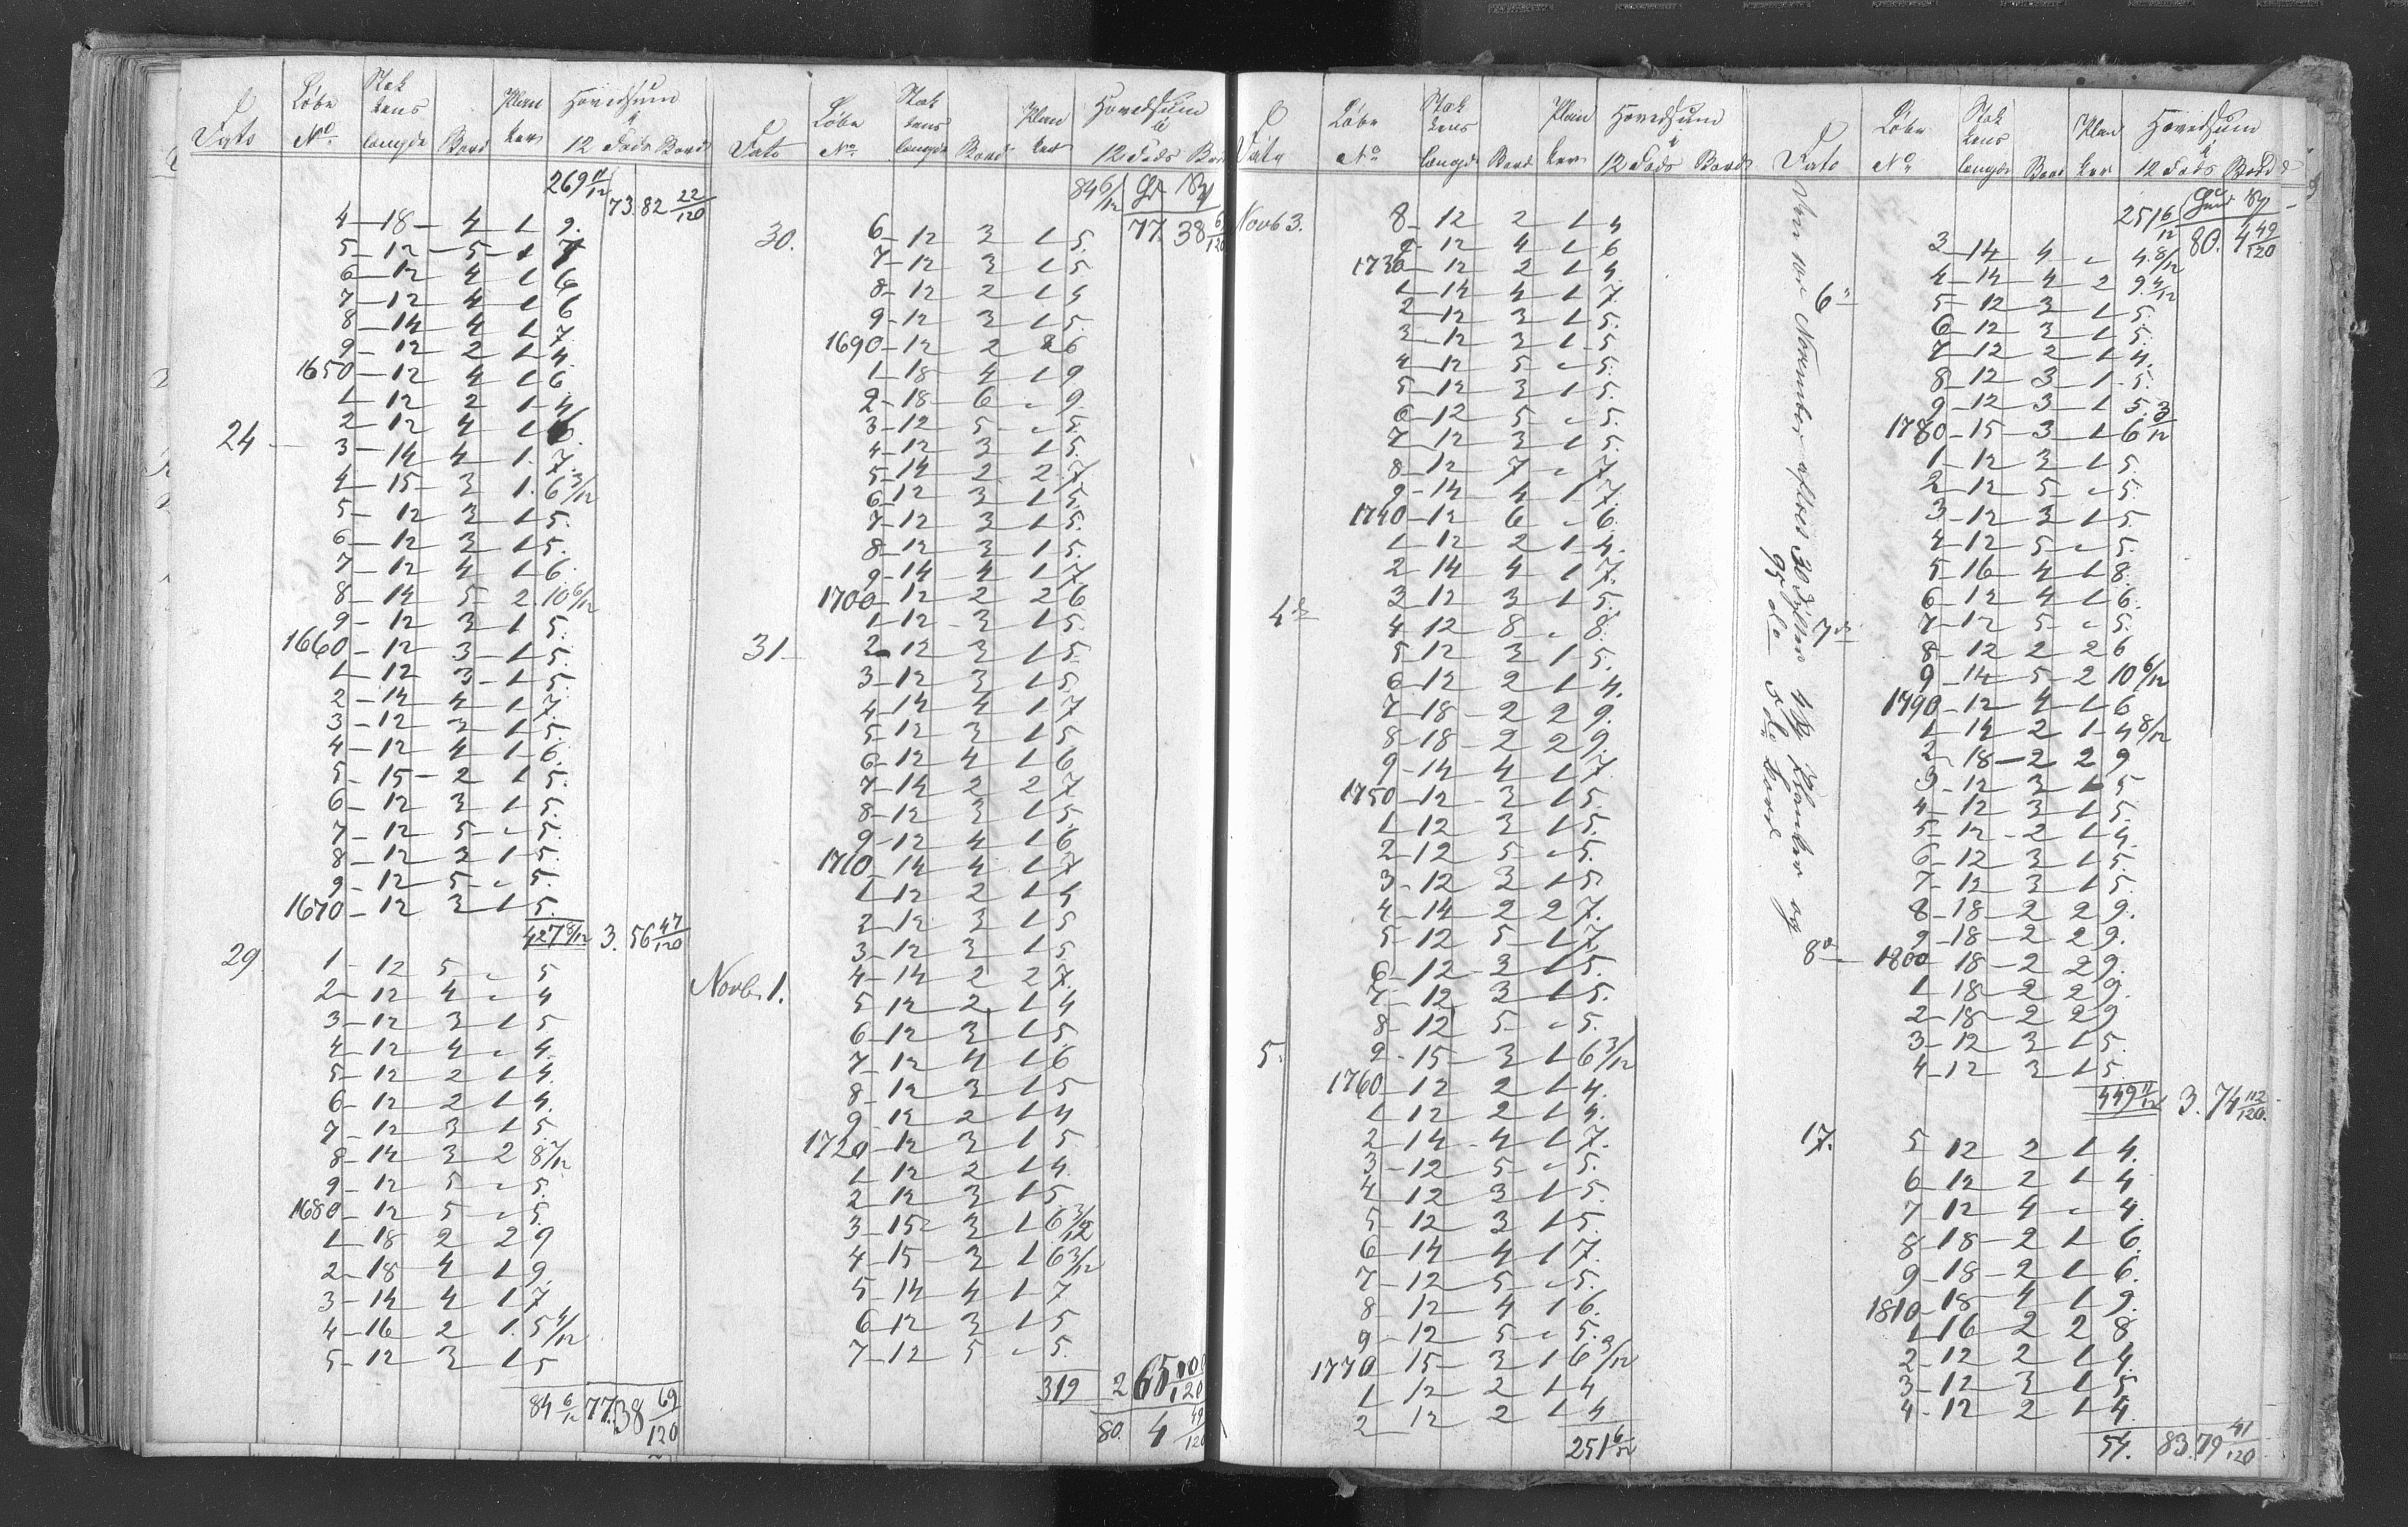 Dato Løbe No. Stok kens længde Bord Plan ker Hovedsum i 12 Fods Bord
269 11/12 73. 82 22/120
4 – 18 – 4 1 9.
5 – 12 – 5 – 1 7
6 – 12 4 1 6
7 – 12 4 1 6
8 – 14 4 1 7.
9 – 12 2 1 4.
1650 – 12 4 1 6.
1 12 2 1 4
2 – 12 4 1 6.
24 – 3 – 14 4 1. 7.
4 – 15 – 3 1. 6 3/12
5 – 12 3 1 5.
6 – 12 3 1 5.
7 – 12 4 1 6.
8 – 14 5 – 2. 10 6/12
9 – 12 3 1 5.
1660 – 12 3 – 1 5.
1 – 12 3 – 1 5.
2 – 14 4 1 7.
3 – 12 3 1 5.
4 – 12 4 1 6.
5 – 15 – 2 1 5.
6 – 12 3 1 5.
7 – 12 5 – „ 5.
8 – 12 3 1 5.
9 – 12 5 – „ 5.
1670 – 12 3 1 5.
427 8/12 3. 56 47/120
29. 1 – 12 5 „ 5
2 – 12 4 „ 4
3 – 12 3 1 5
4 – 12 4 „ 4.
5 – 12 2 1 4.
6 – 12 2 1 4.
7 – 12 3 1 5.
8 – 14 3 2 8 7/12
9 – 12 5 „ 5.
1680 – 12 5 „ 5.
1 18 2 2 9
2 – 18 4 1 9.
3 – 14 4 1 7
4 – 16 2 1. 5 4/12
5 – 12 3 1 5
84 6/12 77. 38 69/120
Dato Løbe No. Stok kens længde Bord Plan ker Hovedsum i 12 Fods Bord
84 6/12 Gr Ty
77. 38 6/120
30. 6 – 12 3 1 5.
7 – 12 3 1 5.
8 – 12 2 1 4
9 – 12 3 1 5.
1690 – 12 2 2 6
1 – 18 4 1 9
2 – 18 6 „ 9.
3 – 12 5 „ 5.
4 – 12 3 1 5.
5 – 14 2 2 7
6 12 3 1 5.
7 – 12 3 1 5.
8 – 12 3 1 5.
9 – 14 4 1 7
1700 – 12 2 2 6
1 – 12 3 1 5.
31 – 2 – 12 3 1 5.
3 – 12 3 1 5
4 – 14 4 1 7
5 12 3 1 5
6 – 12 4 1 6
7 – 14 2 2 7
8 – 12 3 1 5.
9 – 12 4 1 6
1710 – 14 4 1 7
1 12 2 1 4
2 – 12 3 1 5
3 – 12 3 1 5
Novbr 1. 4 – 14 2 2 7.
5 12 2 1 4
6 – 12 3 1 5.
7 – 12 4 1 6
8 – 12 3 1 5
9 – 12 2 1 4
1720 – 12 3 1 5
1 12 2 1 4.
2 12 3 1 5
3 – 15 – 3 1 6 3/12
4 – 15 – 3 1 6 3/12
5 – 14 4 1 7
6 – 12 3 1 5
7 – 12 5 „ 5.
319 2 65 100/120
80. 4 49/120
Dato Løbe No. Stok kens længde Bord Plan ker Hovedsum i 12 Fods Bord
Novb 3. 8 – 12 2 1 4
9 – 12 4 1 6
1730 – 12 2 1 4.
1 – 14 4 1 7.
2 – 12 3 1 5.
3 – 12 3 1 5
4 – 12 5 „ 5.
5 – 12 3 1 5.
6 – 12 5 „ 5.
7 – 12 3 1 5.
8 – 12 7 „ 7
9 – 14 4 1 7.
1740 – 12 6 „ 6.
1 12 2 1 4.
2 14 4 1 7.
3 12 3 1 5.
4de 4 12 8 „ 8.
5 12 3 1 5.
6 – 12 2 1 4.
7 – 18 – 2 2 9.
8 – 18 – 2 2 9.
9 – 14 4 1 7.
1750 – 12 – 3 1 5.
1 12 3 1 5.
2 – 12 5 „ 5.
3 – 12 3 1 5
4 – 14 2 2 7.
5 – 12 5 1 7.
6 – 12 – 3 1 5.
7 – 12 3 1 5.
8 – 12 5 „ 5.
5. 9 – 15 – 3 1 6 3/12
1760 – 12 2 1 4.
1 12 2 1 4.
2 – 14 – 4 1 7.
3 – 12 5 „ 5.
4 12 3 1 5.
5 – 12 3 1 5.
6 – 14 4 1 7.
7 – 12 5 „ 5.
8 12 4 1 6.
9 – 12 5 „ 5.
1770 15 – 3 1 6 3/12
1 12 2 1 4
2 12 2 1 4
251 6/12
Dato Løbe No. Stok kens længde Bord Plan ker Hovedsum i 12 Fods Bord
251 6/12 80. 4 49/120
3 – 14 4 „ 4. 8/12
4 – 14 4 2 9. 4/12
6 – 5 – 12 3 1 5.
6 – 12 3 1 5.
7 – 12 2 1 4.
8 – 12 3 1 5.
9 – 12 3 1 5.
1780 – 15 – 3 1 6 3/12
1 – 12 3 1 5.
2 – 12 5 „ 5.
3 – 12 3 1 5.
4 – 12 5 „ 5.
5 – 16 4 1 8.
6 – 12 4 1 6.
7de 7 – 12 5 „ 5.
8 – 12 2 2 6
9 – 14 5 2 10 6/12
1790 – 12 4 1 6
1 – 14 2 1 4 8/12
2 – 18 – 2 2 9
3 – 12 3 1 5
4 – 12 3 1 5.
5 – 12 – 2 1 4.
6 – 12 3 1 5.
7 – 12 3 1 5.
8 – 18 – 2 2 9.
9 – 18 – 2 2 9.
8de 1800 18 – 2 2 9.
1 18 – 2 2 9.
2 – 18 – 2 2 9
3 – 12 3 1 5.
4 – 12 3 1 5.
449 11/12 3. 74 112/120.
17. 5 12 2 1 4.
6 12 2 1 4
7 12 4 „ 4.
8 – 18 – 2 1 6.
9 – 18 – 2 1 6.
1810 – 18 – 4 1 9.
1 16 2 2 8
2 – 12 2 1 4.
3 – 12 3 1 5
4 – 12 2 1 4.
54. 83. 79 41/120
November 30 Tylter 4 Planker og
95 do Bord